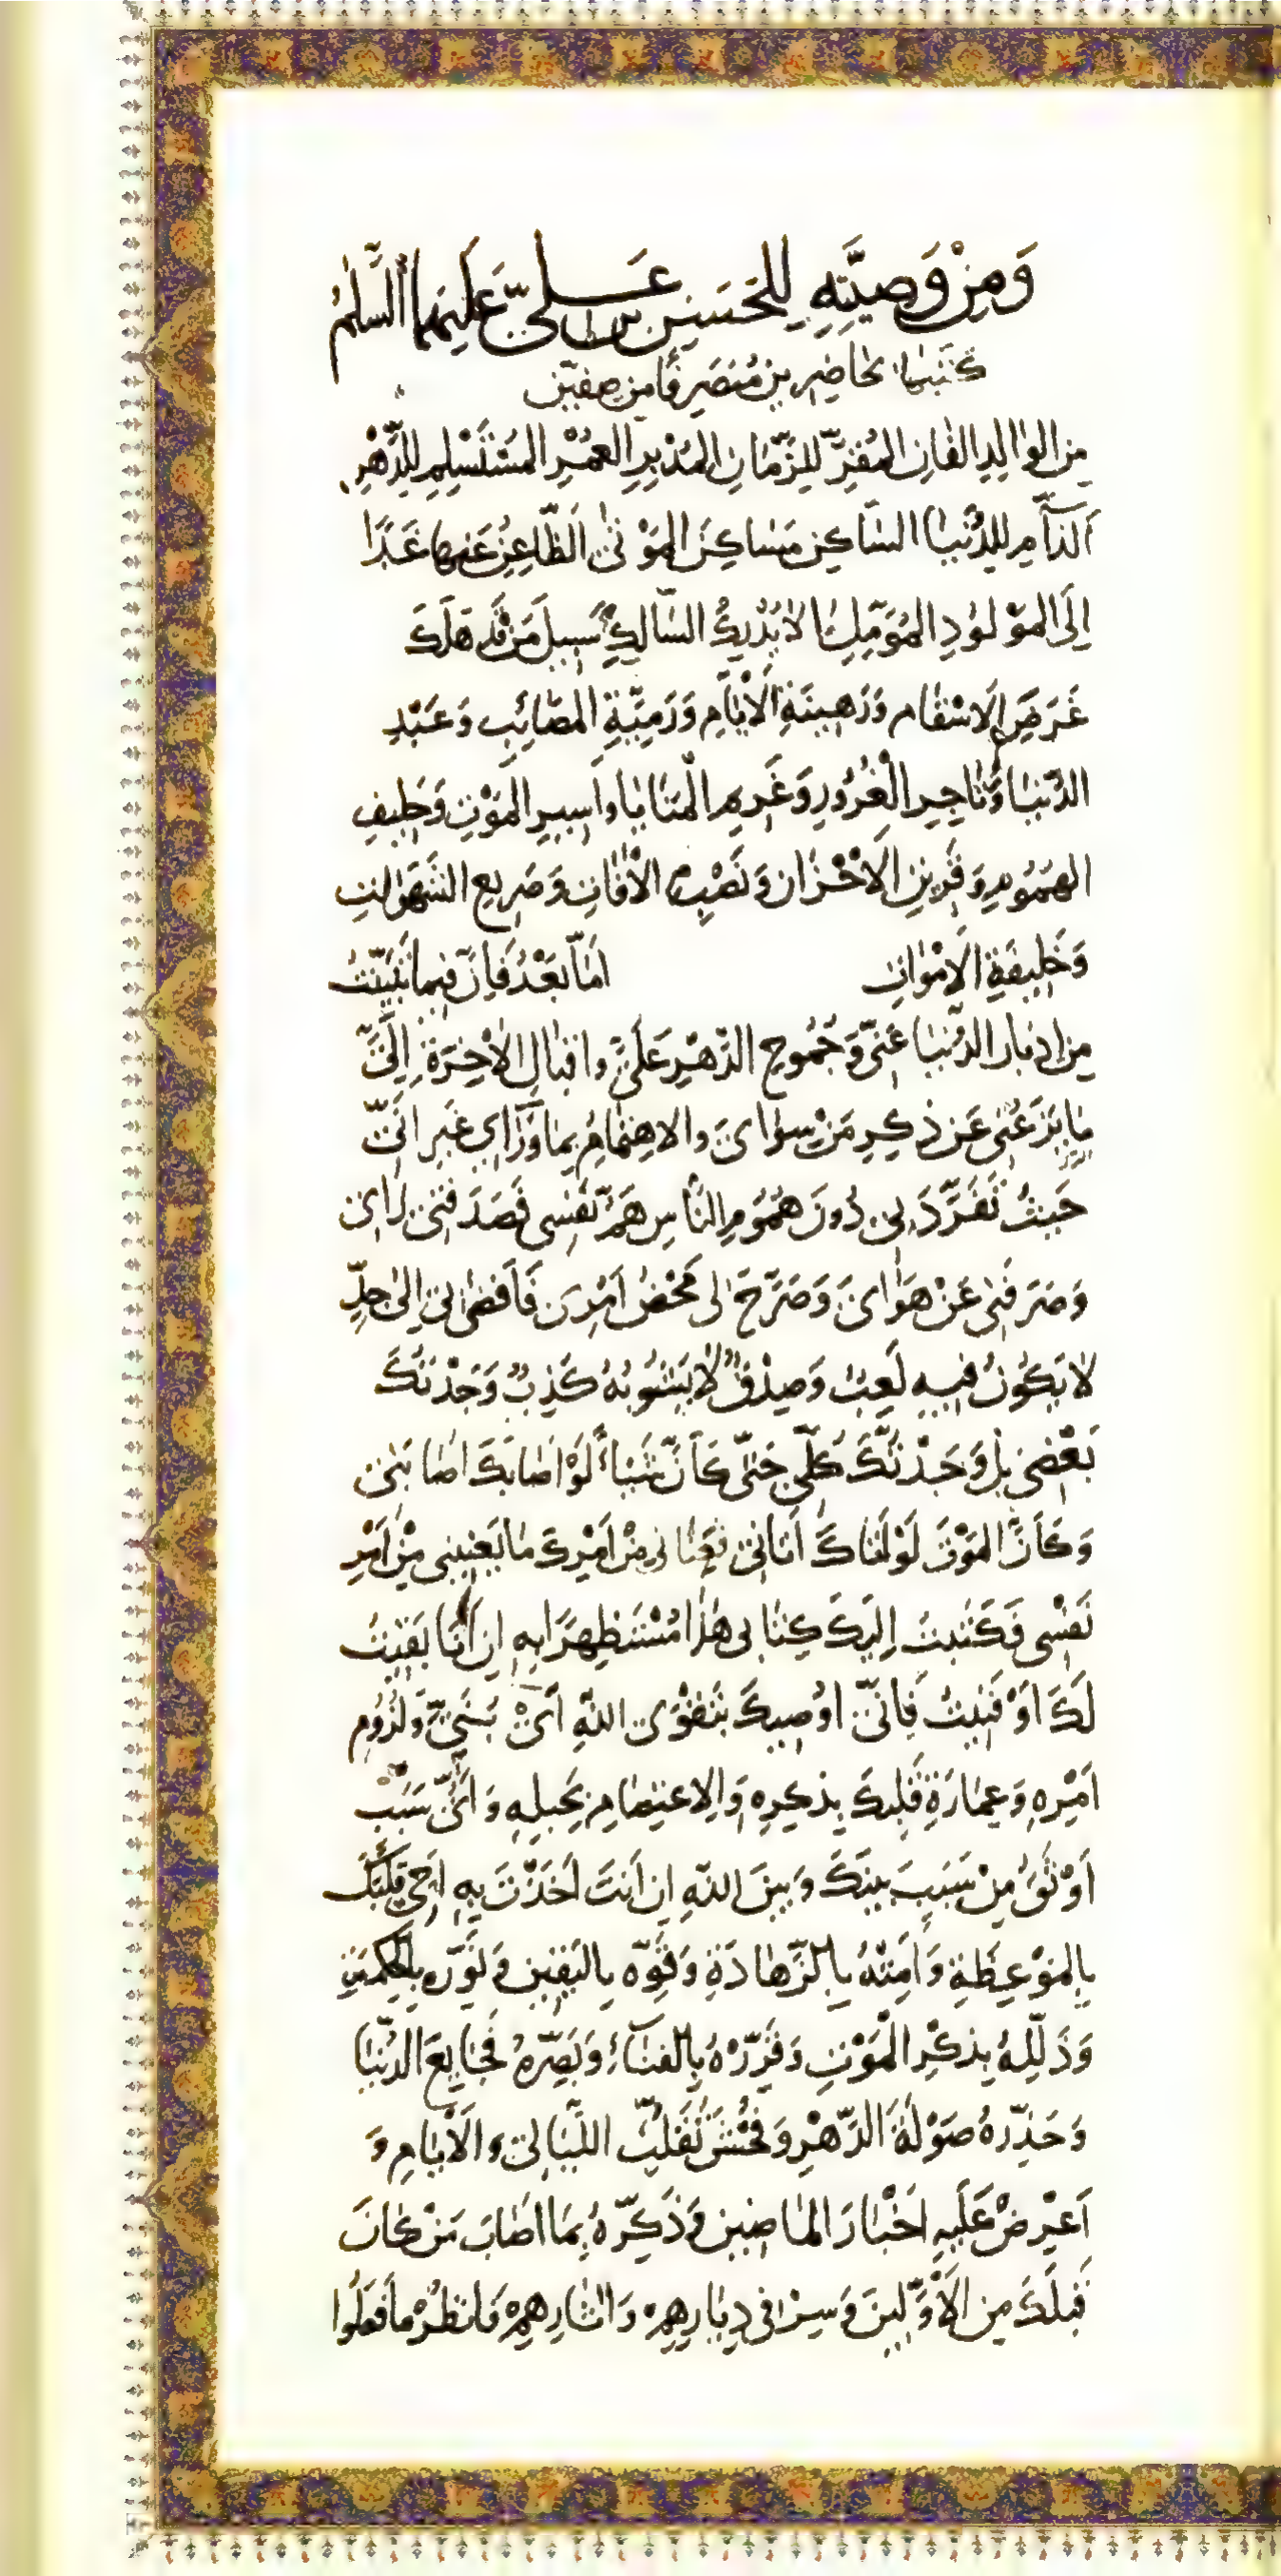 وَمِنْ وَصِيَّتِهِ لِلحَسَنِ بن عَلىّ عَلَيهِمَا السَّلٰمُ
كَتَبَهٰا بحٰاضِرِين مُنصَرِفًا مِن صِفّين
مِن الوٰالِدِ الفٰانِ المُقِرِّ لِلزَّمٰانِ المُدْبِرِ العُمْرِ المُسْتَسْلِمِ لِلدَّهْرِ
اَلذّآمِ لِلدُّنْيٰا السّٰاكِنِ مَسٰاكِنَ المَوْتىٰ اَلظّٰاعِنِ عَنهٰا غَدًا
اِلَى المَوْلوُدِ المُؤَمِّلِ مٰا لاٰ يُدْرِكُ السّٰالِكِ سَبيلَ مَنْ قَد هَلَكَ
غَرَضِ الاَسْقٰامِ وَرَهينَةِ الْاَيّٰامِ وَرَمِيَّةِ المَصٰائِبِ وَعَبْدِ
الدُّنيٰا وَتٰاجِرِ الْغُرُورِ وَغَريمِ الْمَنٰايٰا واَسيرِ المَوْتِ وَحَليفِ
الهُمُومِ وَقَرينِ الاَحْزٰانِ وَنَصْبِ الْاٰفٰاتِ وَصَريعِ الشَّهَوٰاتِ
وَخَليفَةِ الاَمْوٰاتِ اَمّٰا بَعْدُ فَاِنَّ فيمٰا تَبَيَّنْتُ
مِن اِدبٰارِ الدُّنيٰا عَنّى وَجُمُوحِ الدَّهْرِ عَلَىَّ واِقبٰالِ الاٰخِرَةِ اِلَىَّ
مٰا يَزَعُنى عَن ذِكرِ مَنْ سِوٰاىَ والاِهتِمٰامِ بِمٰا وَرٰاىِ غَير اَنّى
حَيثُ تَفَرَّدَ بى دُونَ هُمُومِ النّٰاسِ هَمُّ نَفسى فَصَدَفَنى رَاىى
وَصَرَفَنى عَنْ هَوٰاىَ وَصَرَّحَ لى مَحْضُ اَمْرى فَاَفضىٰ بى اِلىٰ جِدٍّ
لاٰ يَكُونُ فيهِ لَعِبٌ وَصِدْقٍ لاٰ يَشُوبُهُ كَذِبٌ وَجَدْتُكَ
بَعْضى بَل وَجَدْتُكَ كُلّى حَتّٰى كَاَنَّ شَيئاً لَوْ اَصٰابَكَ اَصٰابَنى
وَكَاَنَّ المَوْتَ لَوْ اَتٰاكَ اَتٰانى فَعَنٰانى مِنْ اَمْرِكَ مٰا يَعنينى مِنْ اَمْرِ
نَفْسى فَكَتَبتُ اِلَيكَ كِتٰابى هٰذٰا مُسْتَظهِرًا بِهِ اِن اَنَا بَقيتُ
لَكَ اَوْ فَنيتُ فَاِنّى اوُصيكَ بتَقْوَى اللهِ اَىْ بُنَىَّ وَلُزُومِ
اَمْرِهِ وَعِمٰارَةِ قَلبِكَ بِذِكرِهِ وَالاِعتِصٰامِ بِحَبلِهِ وَاَىُّ سَبَبٍ
اَوْثَقُ مِنْ سَبَبٍ بَينَكَ وَبينَ اللهِ اِن اَنتَ اَخَذْتَ بِهِ اَحْىِ قَلبَكَ
بِالمَوْعِظَةِ وَاَمِتْهُ بِالزَّهٰادَةِ وَقَوِّه بِاليَقينِ وَنَوِّرهُ بِالحِكمَةِ
وَذَلِّلهُ بِذِكْرِ الْمَوْتِ وَقَرِّرْهُ بِالْفَنآءِ وَبَصِّرهُ فَجٰايِعَ الدُّنيٰا
وَحَذِّرهُ صَوْلَةَ الدَّهْرِ وَفُحْشَ تَقَلُّبِ اللَّيٰالى وَالْاَيّٰامِ وَ
اَعْرِضْ عَلَيهِ اَخْبٰارَ المٰاضين وَذَكِّرهُ بِمَا اَصٰابَ مَنْ كٰانَ
قَبلَكَ مِن الاَوَّلينَ وَسِرْ فى دِيٰارِهِم وَاٰثٰارِهِمْ فَانظُرْ مٰا فَعَلُوا